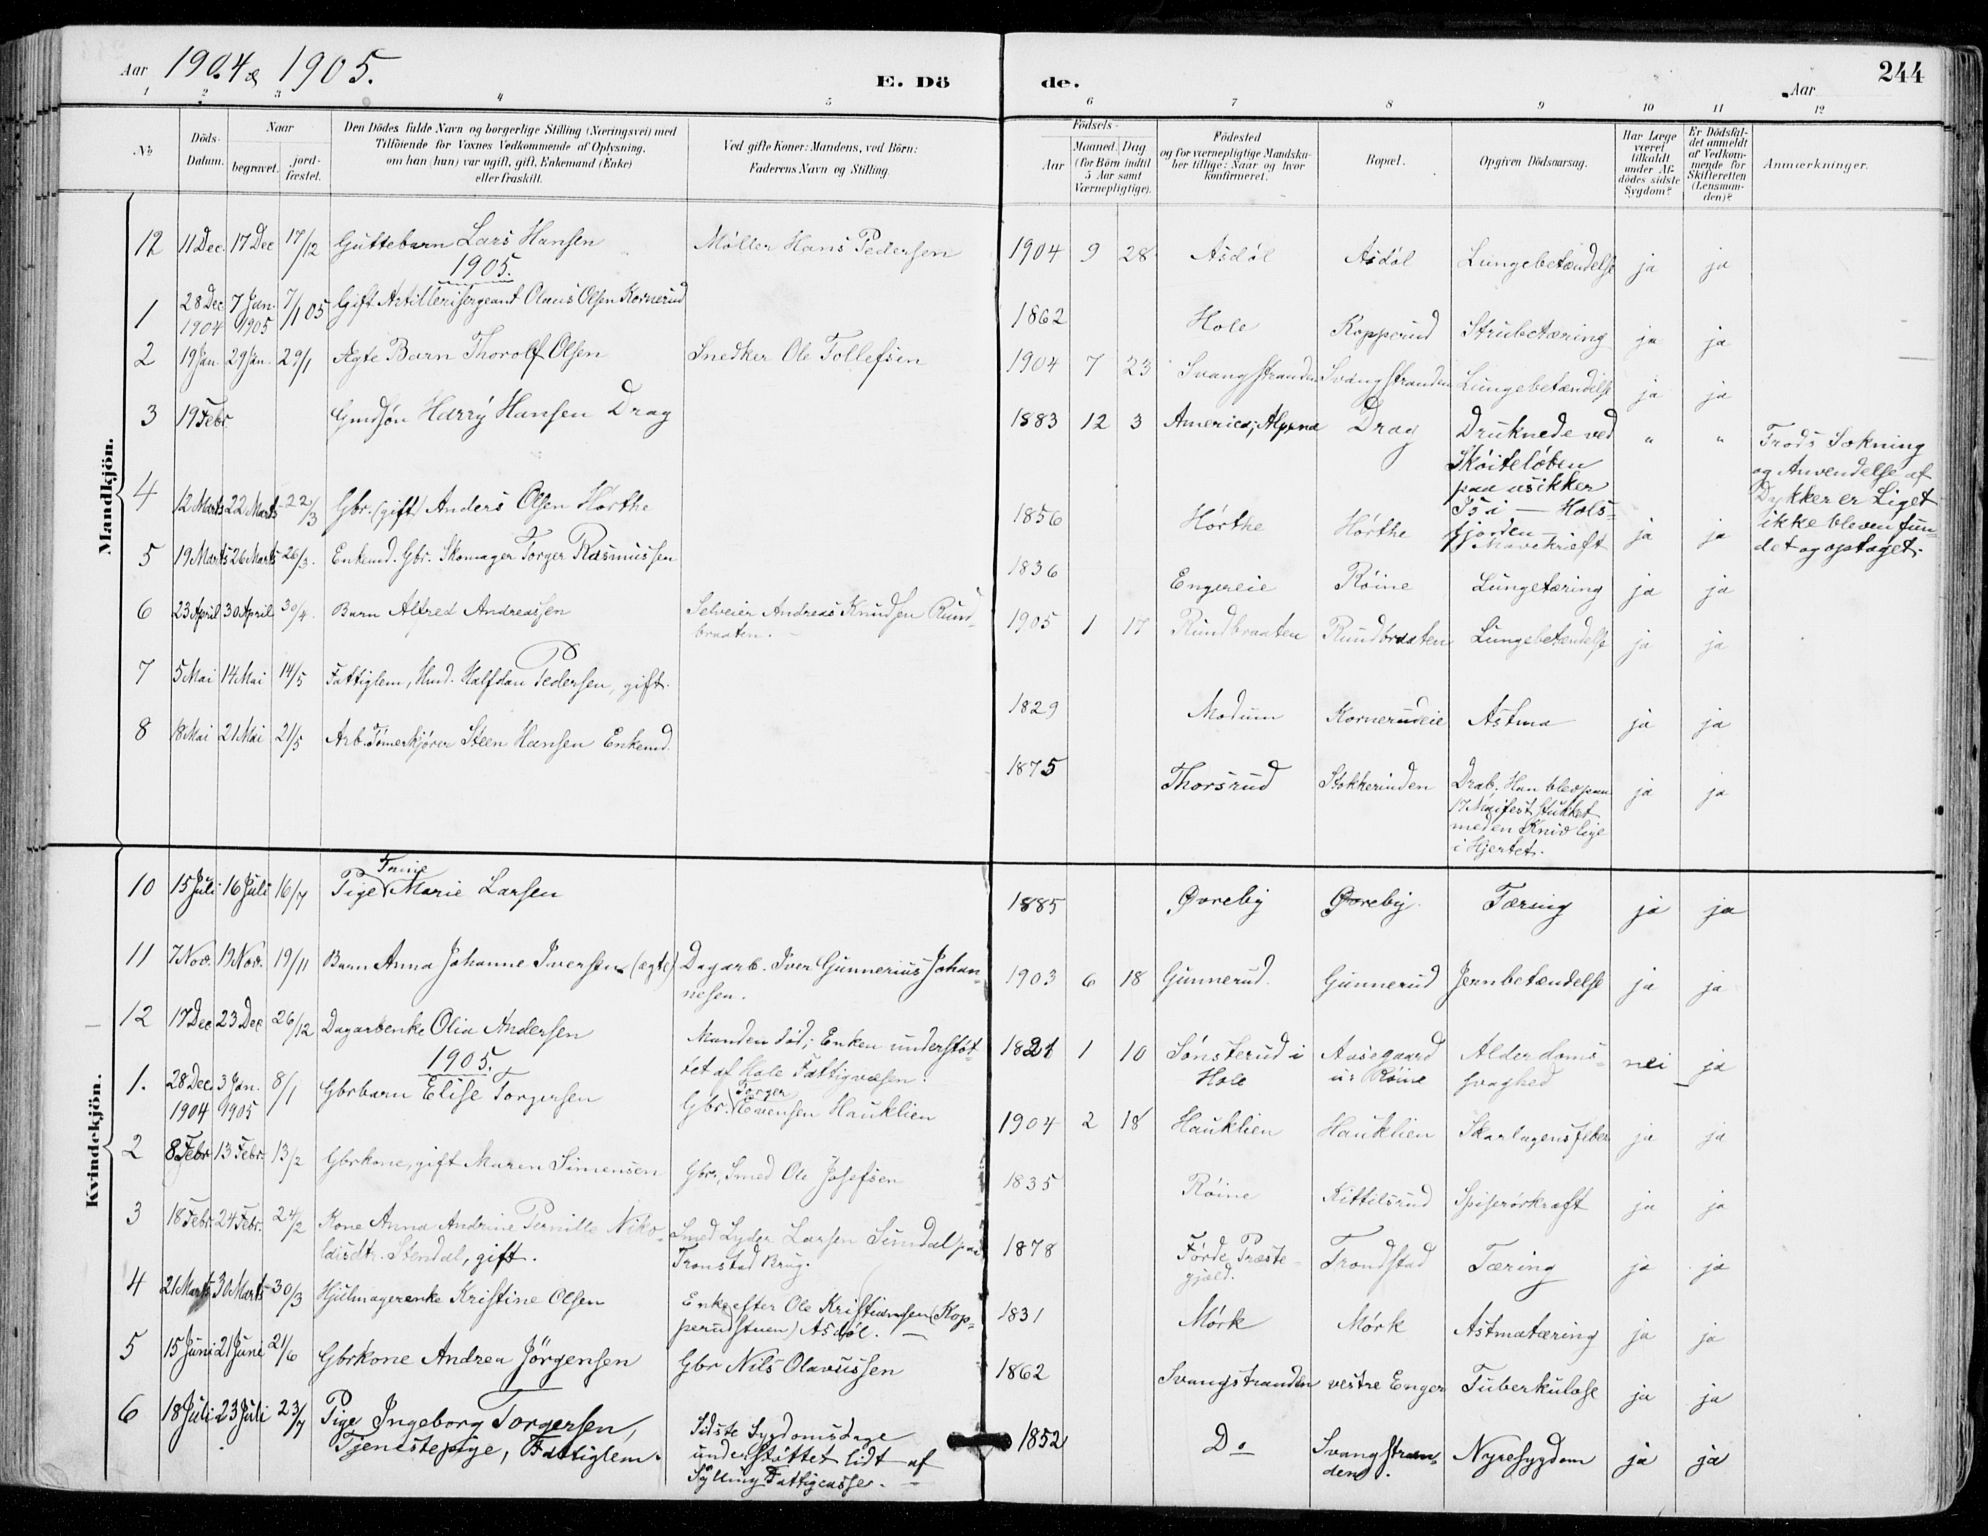 Aar 1904 & 1905. E. Dö de. Aar 244
1 2 3 4 5 6 7 8 9 10 11 12
No Döds-Datum. Naar begravet. jordfæstet. Den Dödes fulde Navn og borgerlige Stilling (Næringsvei) med Tilföiende for Voxnes Vedkommende af Oplysning, om han (hun) var ugift, gift, Enkemand (Enke) eller fraskilt. Ved gifte Koner: Mandens, ved Börn: Faderens Navn og Stilling. Födsels- Aar Maaned. Dag (for Börn indtil 5 Aar samt Værnepligtige). Födested og for værnepligtige Mandskaber tillige: Naar og hvor Konfirmeret. Bopæl. Opgiven Dödsaarsag. Har Læge været tilkaldt under Afdödes sidste Sygdom? Er Dödsfaldet anmeldt af Vedkommende for Skifteretten (Lensmanden)? Anmærkninger.
Mandkjön.
12 11 Dec. 17 Dec 17/12 Guttebarn Lars Hansen Møller Hans Pedersen 1904 9 28 Asdøl Asdøl Lungebetændelse ja ja
1905.
1 28 Dec. 1904 7 Jan. 1905 7/1 05 Gift Artillerisergeant Olaus Olsen Kornerud 1862 Hole Kopperud Strubetæring ja ja
2 19 Jan. 29 Jan. 29/1 Ægte Barn Thorolf Olsen Snedker Ole Tollefsen 1904 7 23 Svangstranden Svangstranden Lungebetændelse ja ja
3 19 Febr. Gmdsøn Harry Hansen Drag 1883 12 3 America; Alpena Drag Druknede ved Skøiteløben paa usikker Is i Holsfjorden " " Trods Søkning og Anvendelse af Dykker er Liget ikke bleven fundet og optaget.
4 12 Marts 22 Marts 22/3 Gbr. (gift) Anders Olsen Hørthe 1856 Hørthe Hørthe Mavekræft ja ja
5 19 Marts 26 Marts 26/3. Enkemd. Gbr. Skomager Torger Rasmussen 1836 Engereie Røine Lungetæring ja ja
6 23 April 30 April 30/4. Barn Alfred Andreassen Selveier Andreas Knudsen Rundbraaten. 1905 1 17 Rundbraaten Rundbraaten Lungebetændelse ja ja
7 5 Mai 14 Mai 14/5 Fattiglem, Hmd. Halfdan Pedersen, gift. 1829 Modum Korneru­deie Astma ja ja
8 18 Mai 21 Mai 21/5 Arb. Tømerkjører Steen Hansen Enkemd. 1875 Thorsrud Stokkerinden Drab. Han blev paa 17 Maifest stukket med en Kniv lige i Hjertet. ja ja
Kvindekjön.
10 15 Juli 16 Juli 16/7 Pige Trine Marie Larsen 1885 Øvreby Øvreby. Tæring ja ja
11 7 Nov. 19 Nov. 19/11 Barn Anna Johanne Iversen (ægte) Dagarb. Iver Gunnerius Johannesen. 1903 6 18 Gunnerud. Gunnerud Jernbetændelse ja ja
12 17 Dec 23 Dec 26/12 Dagarbenke Olia Andersen Manden død; Enken understøttet af Hole Fattigvæsen. 1821 1 10 Sønsterud i Hole Aasegaard u: Røine Alderdomssvaghed nei ja
1905.
1. 28 Dec. 1904 3 Jan. 1905 8/1 Gbrbarn Elise Torgersen Gbr. Torger Evensen Hauklien 1904 2 18 Hauklien Hauklien Skarlagensfeber ja ja
2 8 Febr 13 Febr. 13/2 Gbrkone, gift Maren Simensen Gbr., Smed Ole Josefsen 1835 Røine Kittilsrud Spiserørkræft ja ja
3 18 Febr. 24 Febr. 24/2 Kone Anna Andrine Pernille Nikolaisdtr. Stendal, gift. Smed Lyder Larsen Sundal paa Tronstad Brug. 1878 Førde Præstegjæld. Trondstad Tæring ja ja
4 21 Marts 30 Marts 30/3 Hjulmagerenke Kristine Olsen Enke efter Ole Kristiansen (Kopperudstuen) Asdøl. 1831 Mørk Mørk Astmatæring ja ja
5 15 Juni 21 Juni 21/6 Gbrkone Andrea Jørgensen Gbr Nils Olavussen 1862 Svangstranden vestre Enger Tuberkulose ja ja
6 18 Juli 23 Juli 23/7 Pige Ingeborg Torgersen, Tjenestepige, Fattiglem. Sidste Sygdomsdage understøttet lidt af Sylling Fattigcasse. 1852 Do Svangstranden. Nyresygdom ja ja